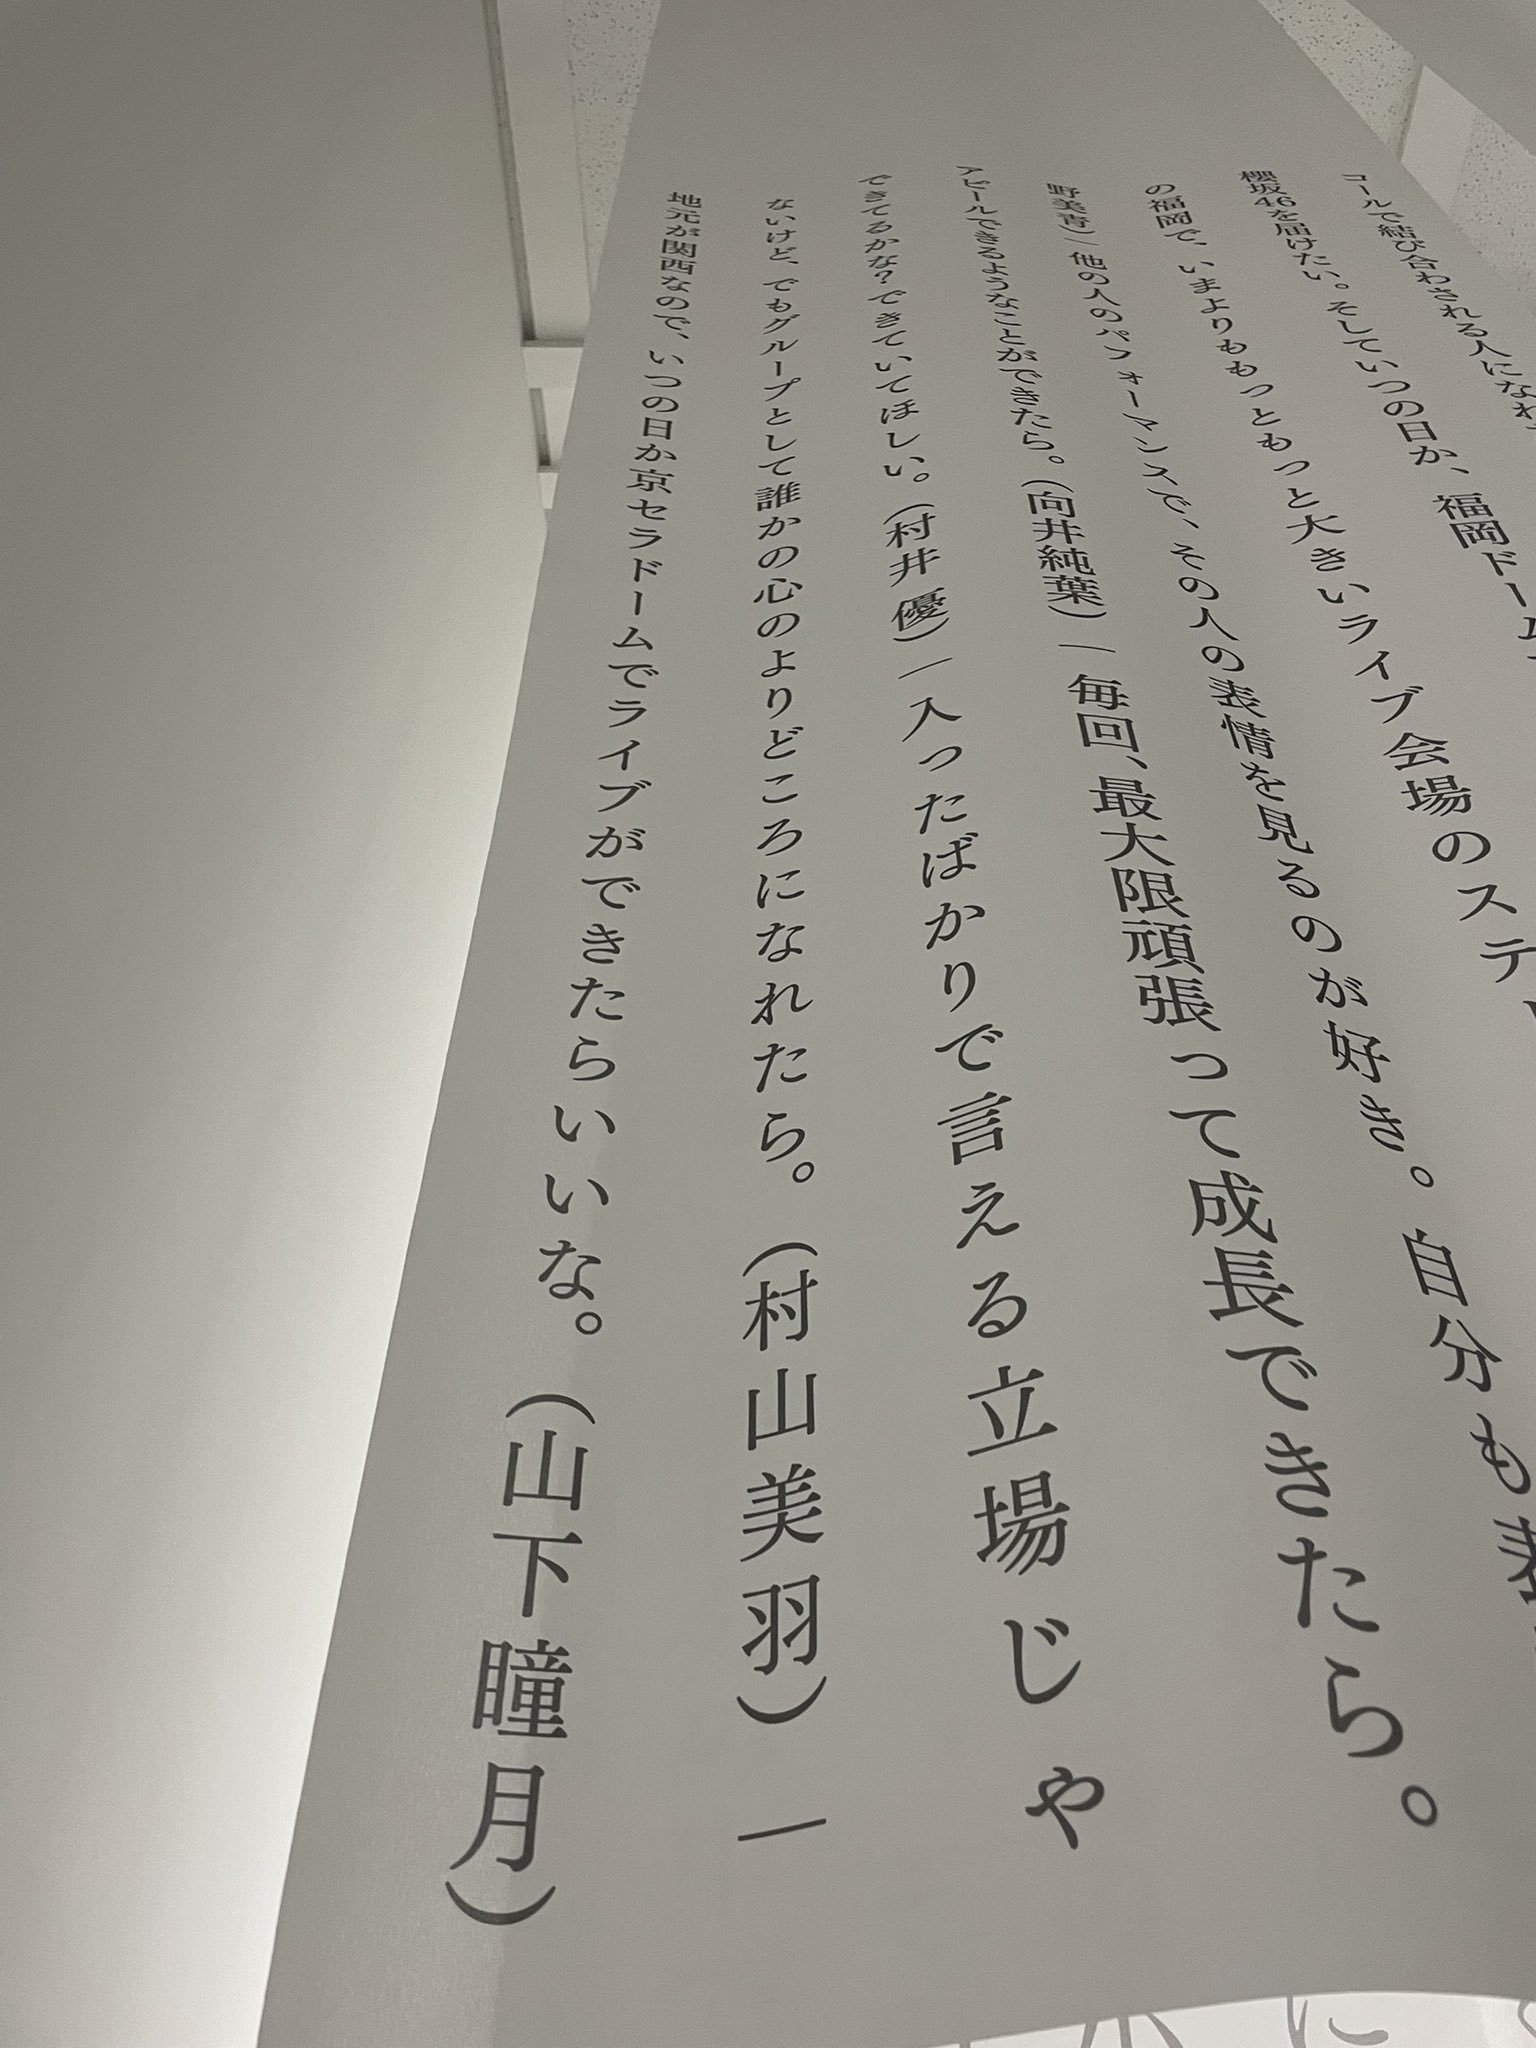 コールで結び合わされる人になれ
櫻坂46を届けたい。そしていつの日か、福岡ドー
の福岡で、いまよりももっともっと大きいライブ会場のステ
野美青）／他の人のパフォーマンスで、その人の表情を見るのが好き。自分も
アピールできるようなことができたら。（向井純葉）／毎回、最大限頑張って成長できたら。
できてるかな？できていてほしい。（村井優）／入ったばかりで言える立場じゃ
ないけど、でもグループとして誰かの心のよりどころになれたら。（村山美羽）／
地元が関西なので、いつの日か京セラドームでライブができたらいいな。（山下瞳月）
に